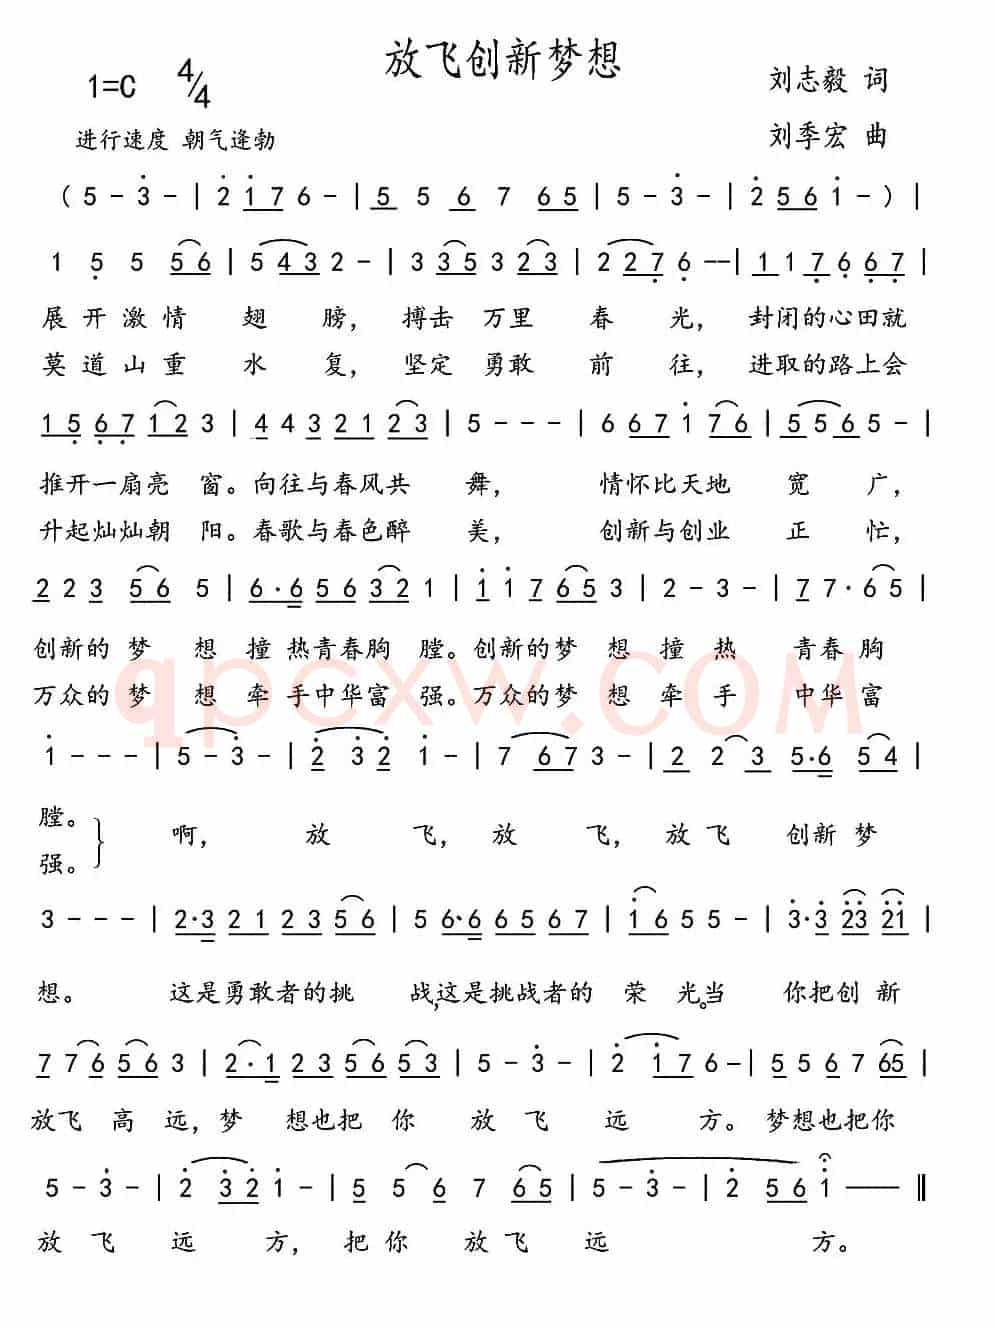 放飞创新梦想
1=C 4/4
刘志毅 词
进行速度 朝气逢勃
刘季宏 曲
( 5 - 3 - | 2 1 7 6 - | 5 5 6 7 6 5 | 5 - 3 - | 2 5 6 1 - ) |
1 5 5 5 6 | 5 4 3 2 - | 3 3 5 3 2 3 | 2 2 7 6 - - | 1 1 7 6 6 7 |
展 开 激 情 翅 膀, 搏击 万里 春 光, 封闭的心田就
莫 道 山 重 水 复, 坚定 勇敢 前 往, 进取的路上会
1 5 6 7 1 2 3 | 4 4 3 2 1 2 3 | 5 - - - | 6 6 7 1 7 6 | 5 5 6 5 - |
推开一扇亮 窗。向往与春风共 舞, 情怀比天地 宽 广,
升起灿灿朝 阳。春歌与春色醉 美, 创新与创业 正 忙,
2 2 3 5 6 5 | 6 · 6 5 6 3 2 1 | 1 1 7 6 5 3 | 2 - 3 - | 7 7 · 6 5 |
创新的 梦 想 撞 热青春胸 膛。创新的梦 想 撞 热 青春 胸
万众的 梦 想 牵 手中华富 强。万众的梦 想 牵 手 中华 富
1 - - - | 5 - 3 - | 2 3 2 1 - | 7 6 7 3 - | 2 2 2 3 5·6 5 4 |
膛。
强。
啊, 放 飞, 放 飞, 放 飞 创新 梦
3 - - - | 2·3 2 1 2 3 5 6 | 5 6·6 6 5 6 7 | 1 6 5 5 - | 3·3 2 3 2 1 |
想。 这是勇敢者的挑 战,这是挑战者的 荣 光。当 你把创 新
7 7 6 5 6 3 | 2 · 1 3 5 6 5 3 | 5 - 3 - | 2 1 7 6 - | 5 5 6 7 6 5 |
放飞 高 远, 梦 想也把 你 放 飞 远 方。梦想也把你
5 - 3 - | 2 3 2 1 - | 5 5 6 7 6 5 | 5 - 3 - | 2 5 6 1 —— ‖
放 飞 远 方, 把 你 放飞 远 方。
qpcxw.COM